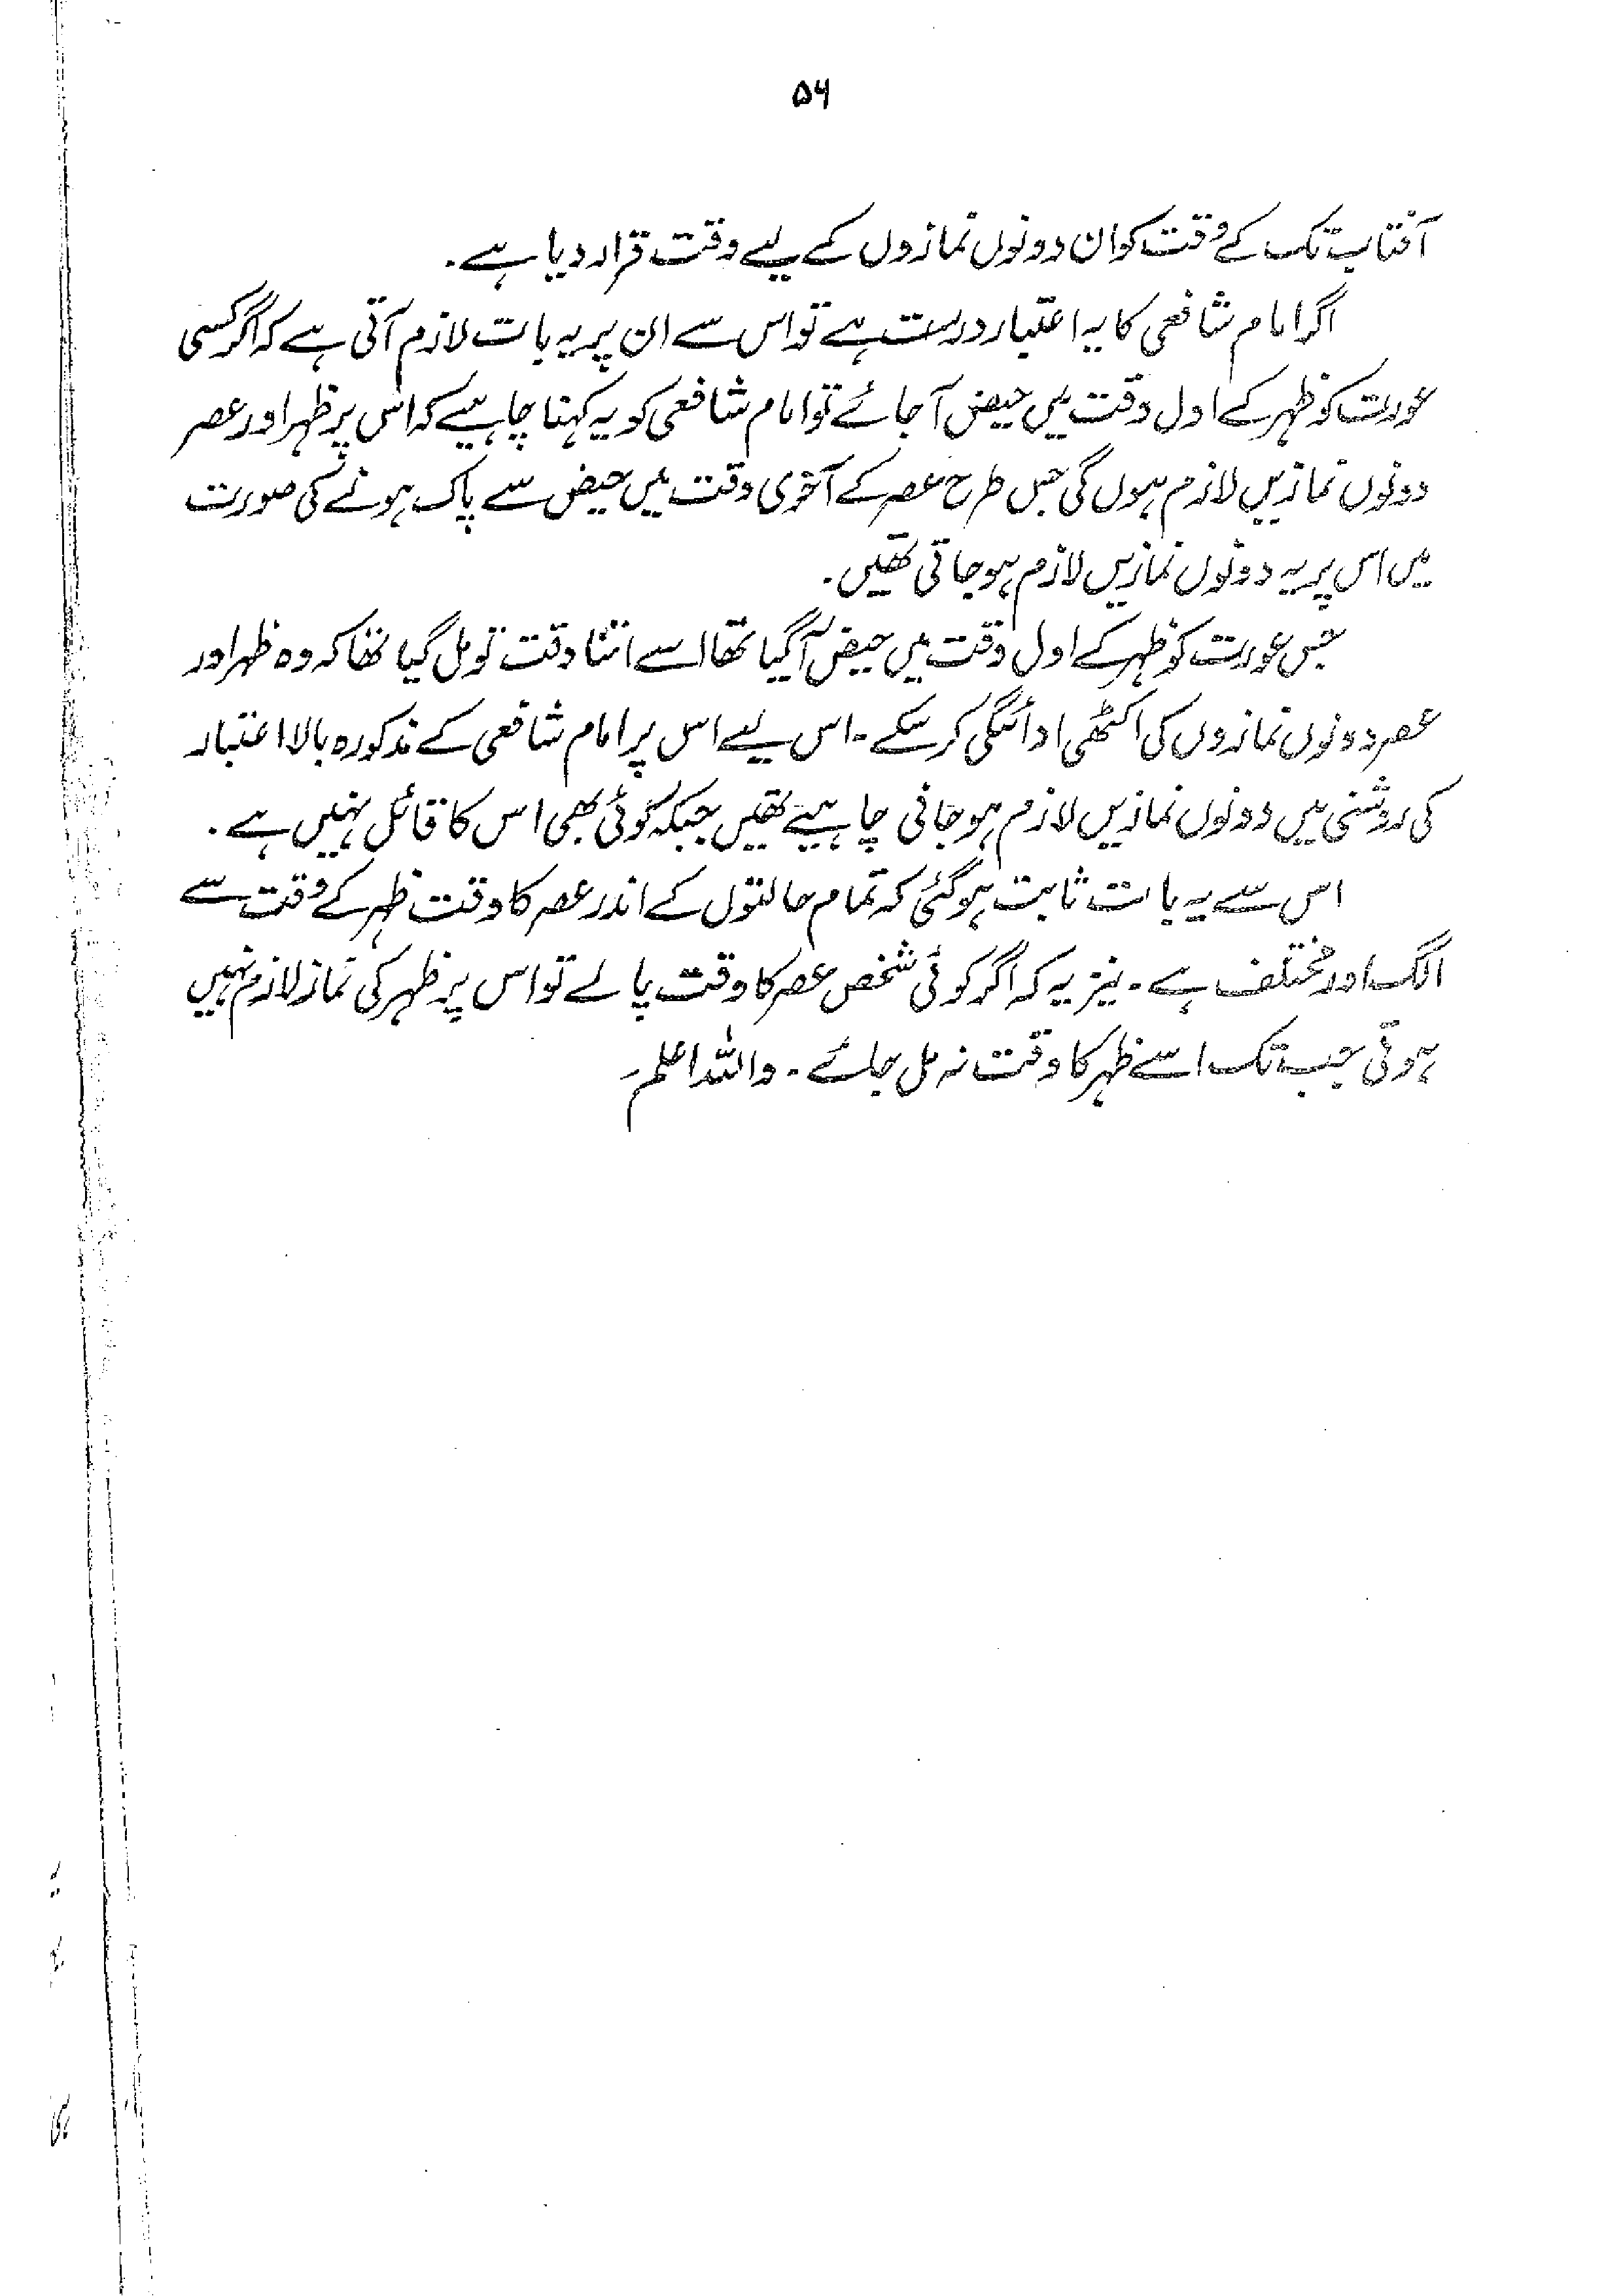 ۵۶
آفتاب تک کے وقت کو ان دونوں نمازوں کے لیے وقت قرار دیا ہے۔
اگر امام شافعی کا یہ اعتبار درست ہے تو اس سے ان پر یہ بات لازم آتی ہے کہ اگر کسی
عورت کو ظہر کے اول وقت میں حیض آ جائے تو امام شافعی کو یہ کہنا چاہیے کہ اس پر ظہر اور عصر
دونوں نمازیں لازم ہوں گی جس طرح عصر کے آخری وقت میں حیض سے پاک ہونے کی صورت
میں اس پر یہ دونوں نمازیں لازم ہو جاتی تھیں۔
جس عورت کو ظہر کے اول وقت میں حیض آ گیا تھا اسے اتنا وقت تو مل گیا تھا کہ وہ ظہر اور
عصر دونوں نمازوں کی اکٹھی ادائیگی کر سکے۔ اس لیے اس پر امام شافعی کے مذکورہ بالا اعتبار
کی روشنی میں دونوں نمازیں لازم ہو جانی چاہیے تھیں جبکہ کوئی بھی اس کا قائل نہیں ہے۔
اس سے یہ بات ثابت ہو گئی کہ تمام حالتوں کے اندر عصر کا وقت ظہر کے وقت سے
الگ اور مختلف ہے۔ نیز یہ کہ اگر کوئی شخص عصر کا وقت پا لے تو اس پر ظہر کی نماز لازم نہیں
ہوتی جب تک اسے ظہر کا وقت نہ مل جائے۔ واللہ اعلم۔